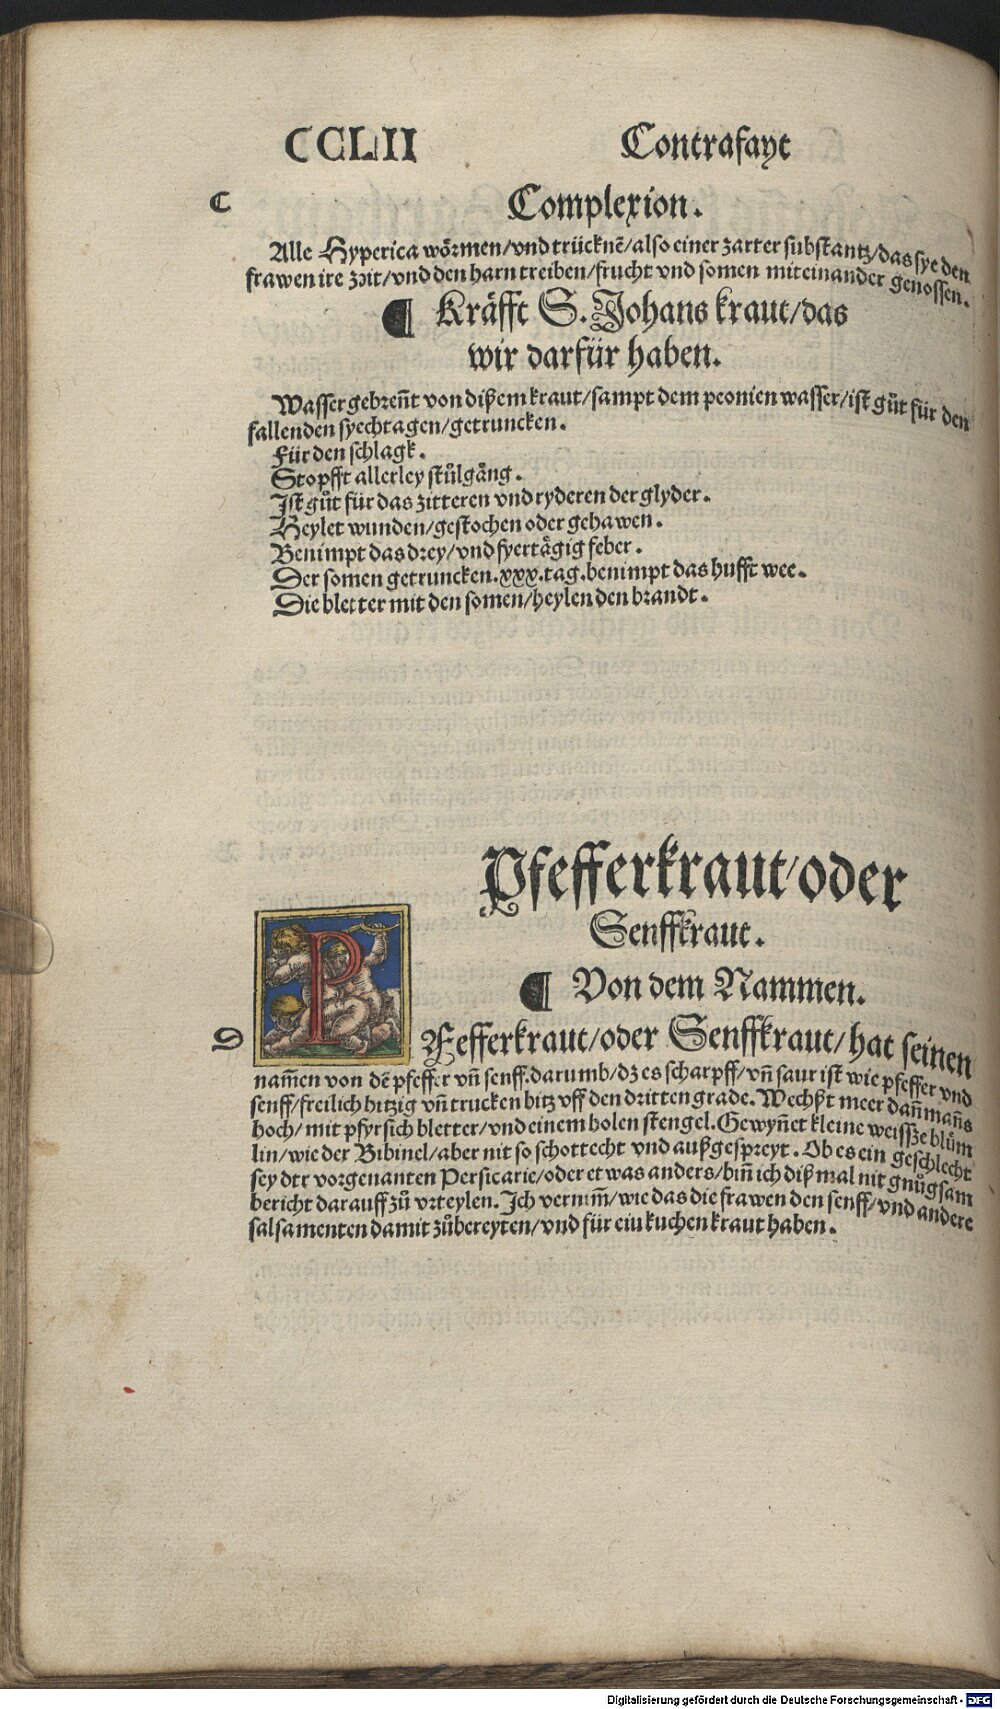 CCLII Contrafayt
C Complexion.
Alle Hyperica wörmen/vnd trücknē/also einer zarter substantz/das sye den
frawen ire zeit/vnd den harn treiben/frucht vnd somen miteinander genossen.
¶ Kräfft S. Johans kraut/das
wir darfür haben.
Wasser gebreñt von dißem kraut/sampt dem peonien wasser/ist gůt für den
fallenden syechtagen/getruncken.
Für den schlagk.
Stopfft allerley stůlgäng.
Ist gůt für das zitteren vnd ryderen der glyder.
Heylet wunden/gestochen oder gehawen.
Benimpt das drey/vnd fyertägig feber.
Der somen getruncken.xxx.tag.benimpt das hufft wee.
Die bletter mit den somen/heylen den brandt.
Pfefferkraut/oder
Senffkraut.
¶ Von dem Nammen.
D PFefferkraut/oder Senffkraut/hat seinen
nam̃en von dē pfeffer vñ senff.darumb/dz es scharpff/vñ saur ist wie pfeffer vnd
senff/freilich hitzig vñ trucken bitz vff den dritten grade. Wechßt meer dañ mañs
hoch/mit pfyrsich bletter/vnd einem holen stengel. Gewyñet kleine weissze blům
lin/wie der Bibinel/aber nit so schottecht vnd außgespreyt. Ob es ein geschlecht
sey der vorgenanten Persicarie/oder etwas anders/biñ ich diß mal nit gnůgsam
bericht darauff zů vrteylen. Ich vernim̃/wie das die frawen den senff/vnd andere
salsamenten damit zůbereyten/vnd für ein kuchen kraut haben.
Digitalisierung gefördert durch die Deutsche Forschungsgemeinschaft - DFG